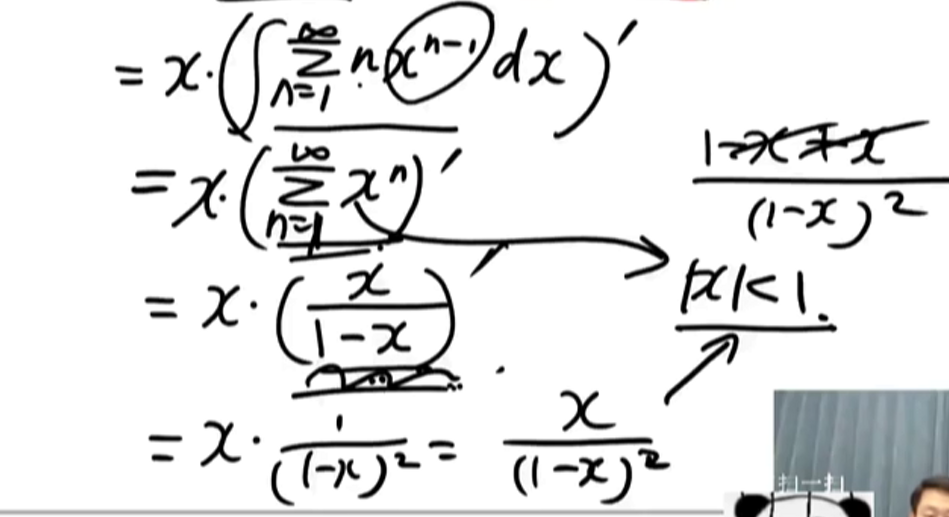 = x·(∫ ∑_{n=1}^{∞} n x^{n-1} dx)′
= x·(∑_{n=1}^{∞} x^n)′
= x·(x/(1-x))′
= x·1/(1-x)² = x/(1-x)²
(1-x+x)/(1-x)²
|x|<1.
扫一扫